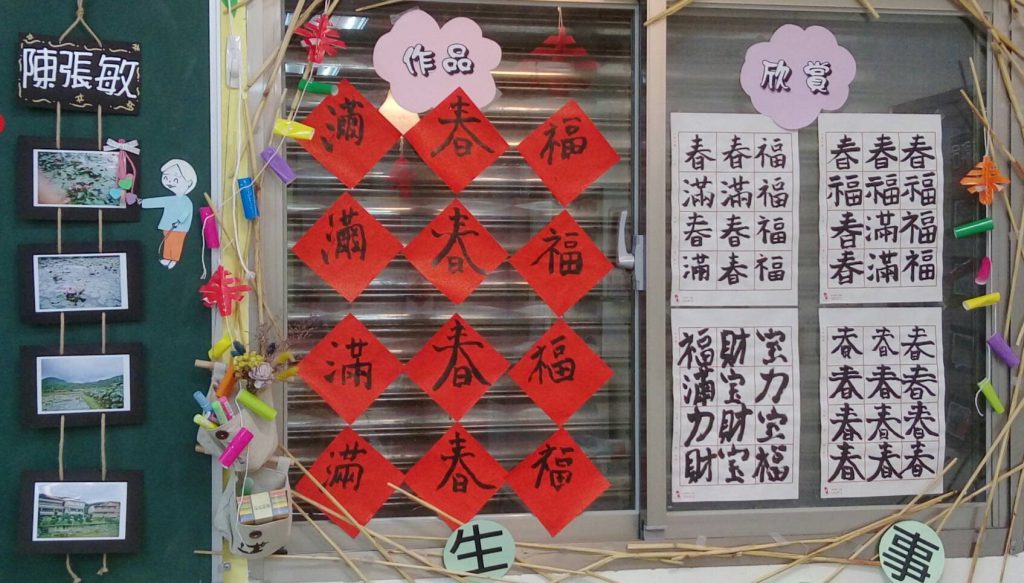 陳張敏
作品
欣賞
滿 春 福
滿 春 福
滿 春 福
滿 春 福
春春福
滿滿福
春春福
滿春福
春春春
福福福
春滿福
春滿福
福財宝
滿宝力
力財宝
財宝福
春春春
春春春
春春春
春春春
生
事